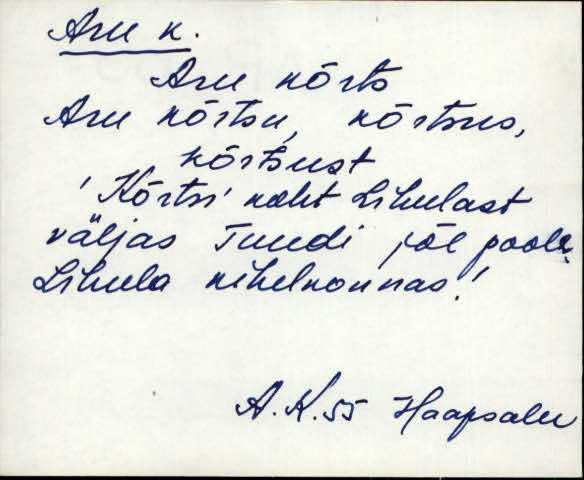 Aru k.
Aru kõrts
Aru kõrtsu, kõrtsus,
kõrtsust
'Kõrtsi' koht Lihulast
väljas Tuudi jõe poole
Lihula kihelkonnas!
A.K.55 Haapsalu